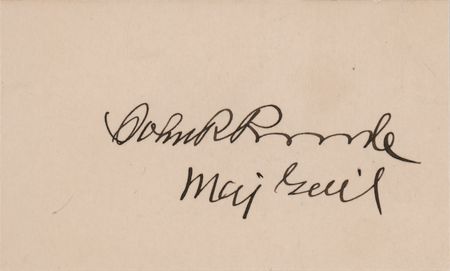 John R Brooke
Maj Genl